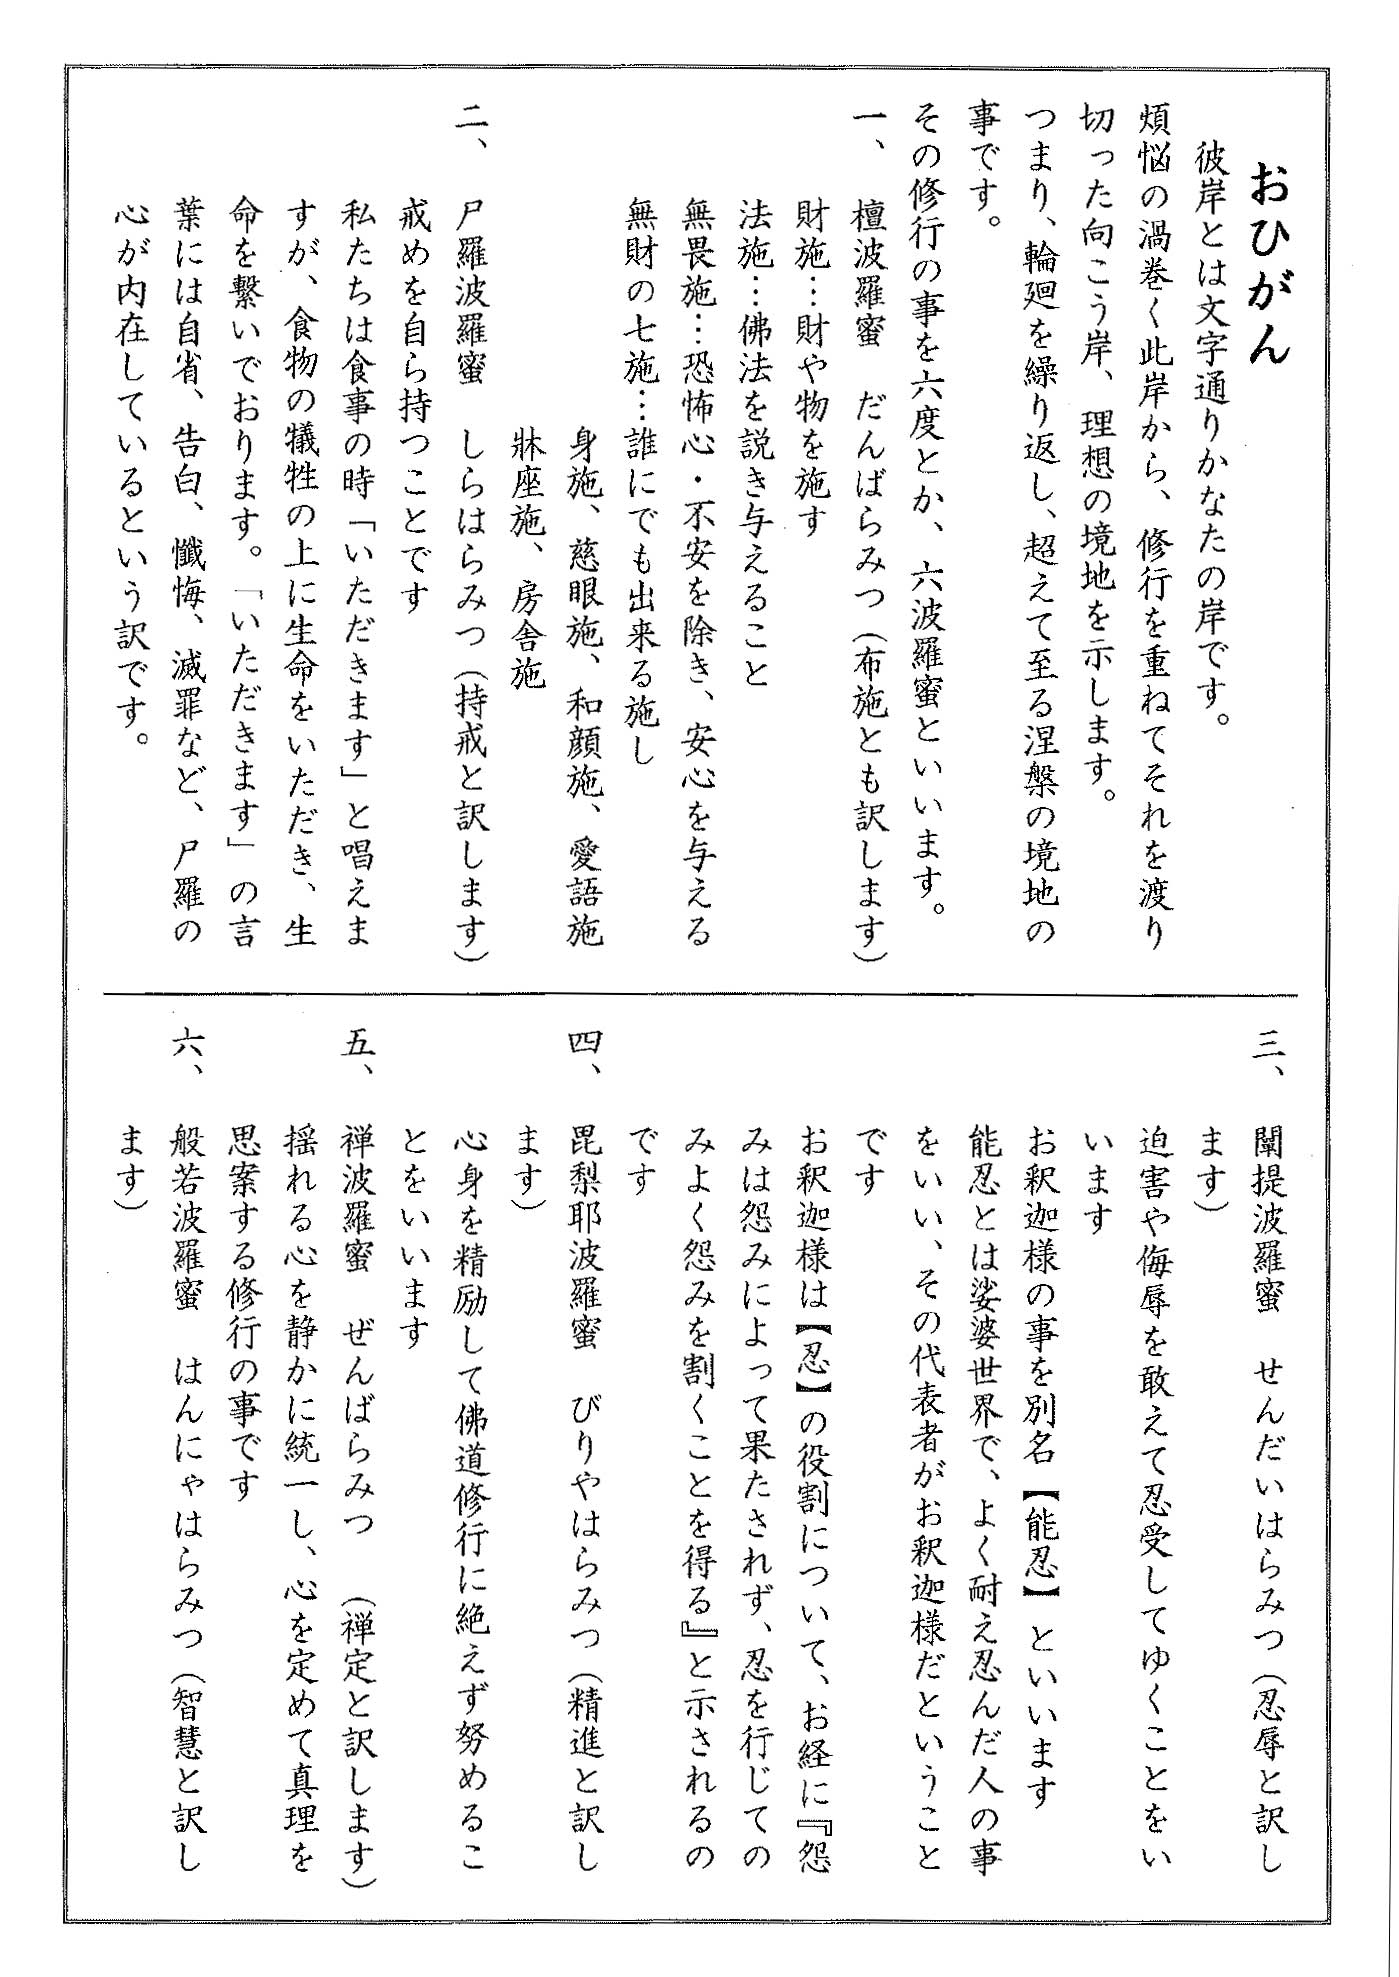 おひがん
彼岸とは文字通りかなたの岸です。
煩悩の渦巻く此岸から、修行を重ねてそれを渡り
切った向こう岸、理想の境地を示します。
つまり、輪廻を繰り返し、超えて至る涅槃の境地の
事です。
その修行の事を六度とか、六波羅蜜といいます。
一、　檀波羅蜜　だんばらみつ（布施とも訳します）
財施…財や物を施す
法施…佛法を説き与えること
無畏施…恐怖心・不安を除き、安心を与える
無財の七施…誰にでも出来る施し
身施、慈眼施、和顔施、愛語施
牀座施、房舎施
二、　尸羅波羅蜜　しらはらみつ（持戒と訳します）
戒めを自ら持つことです
私たちは食事の時「いただきます」と唱えま
すが、食物の犠牲の上に生命をいただき、生
命を繋いでおります。「いただきます」の言
葉には自省、告白、懺悔、滅罪など、尸羅の
心が内在しているという訳です。
三、　闡提波羅蜜　せんだいはらみつ（忍辱と訳し
ます）
迫害や侮辱を敢えて忍受してゆくことをい
います
お釈迦様の事を別名【能忍】といいます
能忍とは娑婆世界で、よく耐え忍んだ人の事
をいい、その代表者がお釈迦様だということ
です
お釈迦様は【忍】の役割について、お経に『怨
みは怨みによって果たされず、忍を行じての
みよく怨みを割くことを得る』と示されるの
です
四、　毘梨耶波羅蜜　びりやはらみつ（精進と訳し
ます）
心身を精励して佛道修行に絶えず努めるこ
とをいいます
五、　禅波羅蜜　ぜんばらみつ　（禅定と訳します）
揺れる心を静かに統一し、心を定めて真理を
思案する修行の事です
六、　般若波羅蜜　はんにゃはらみつ（智慧と訳し
ます）